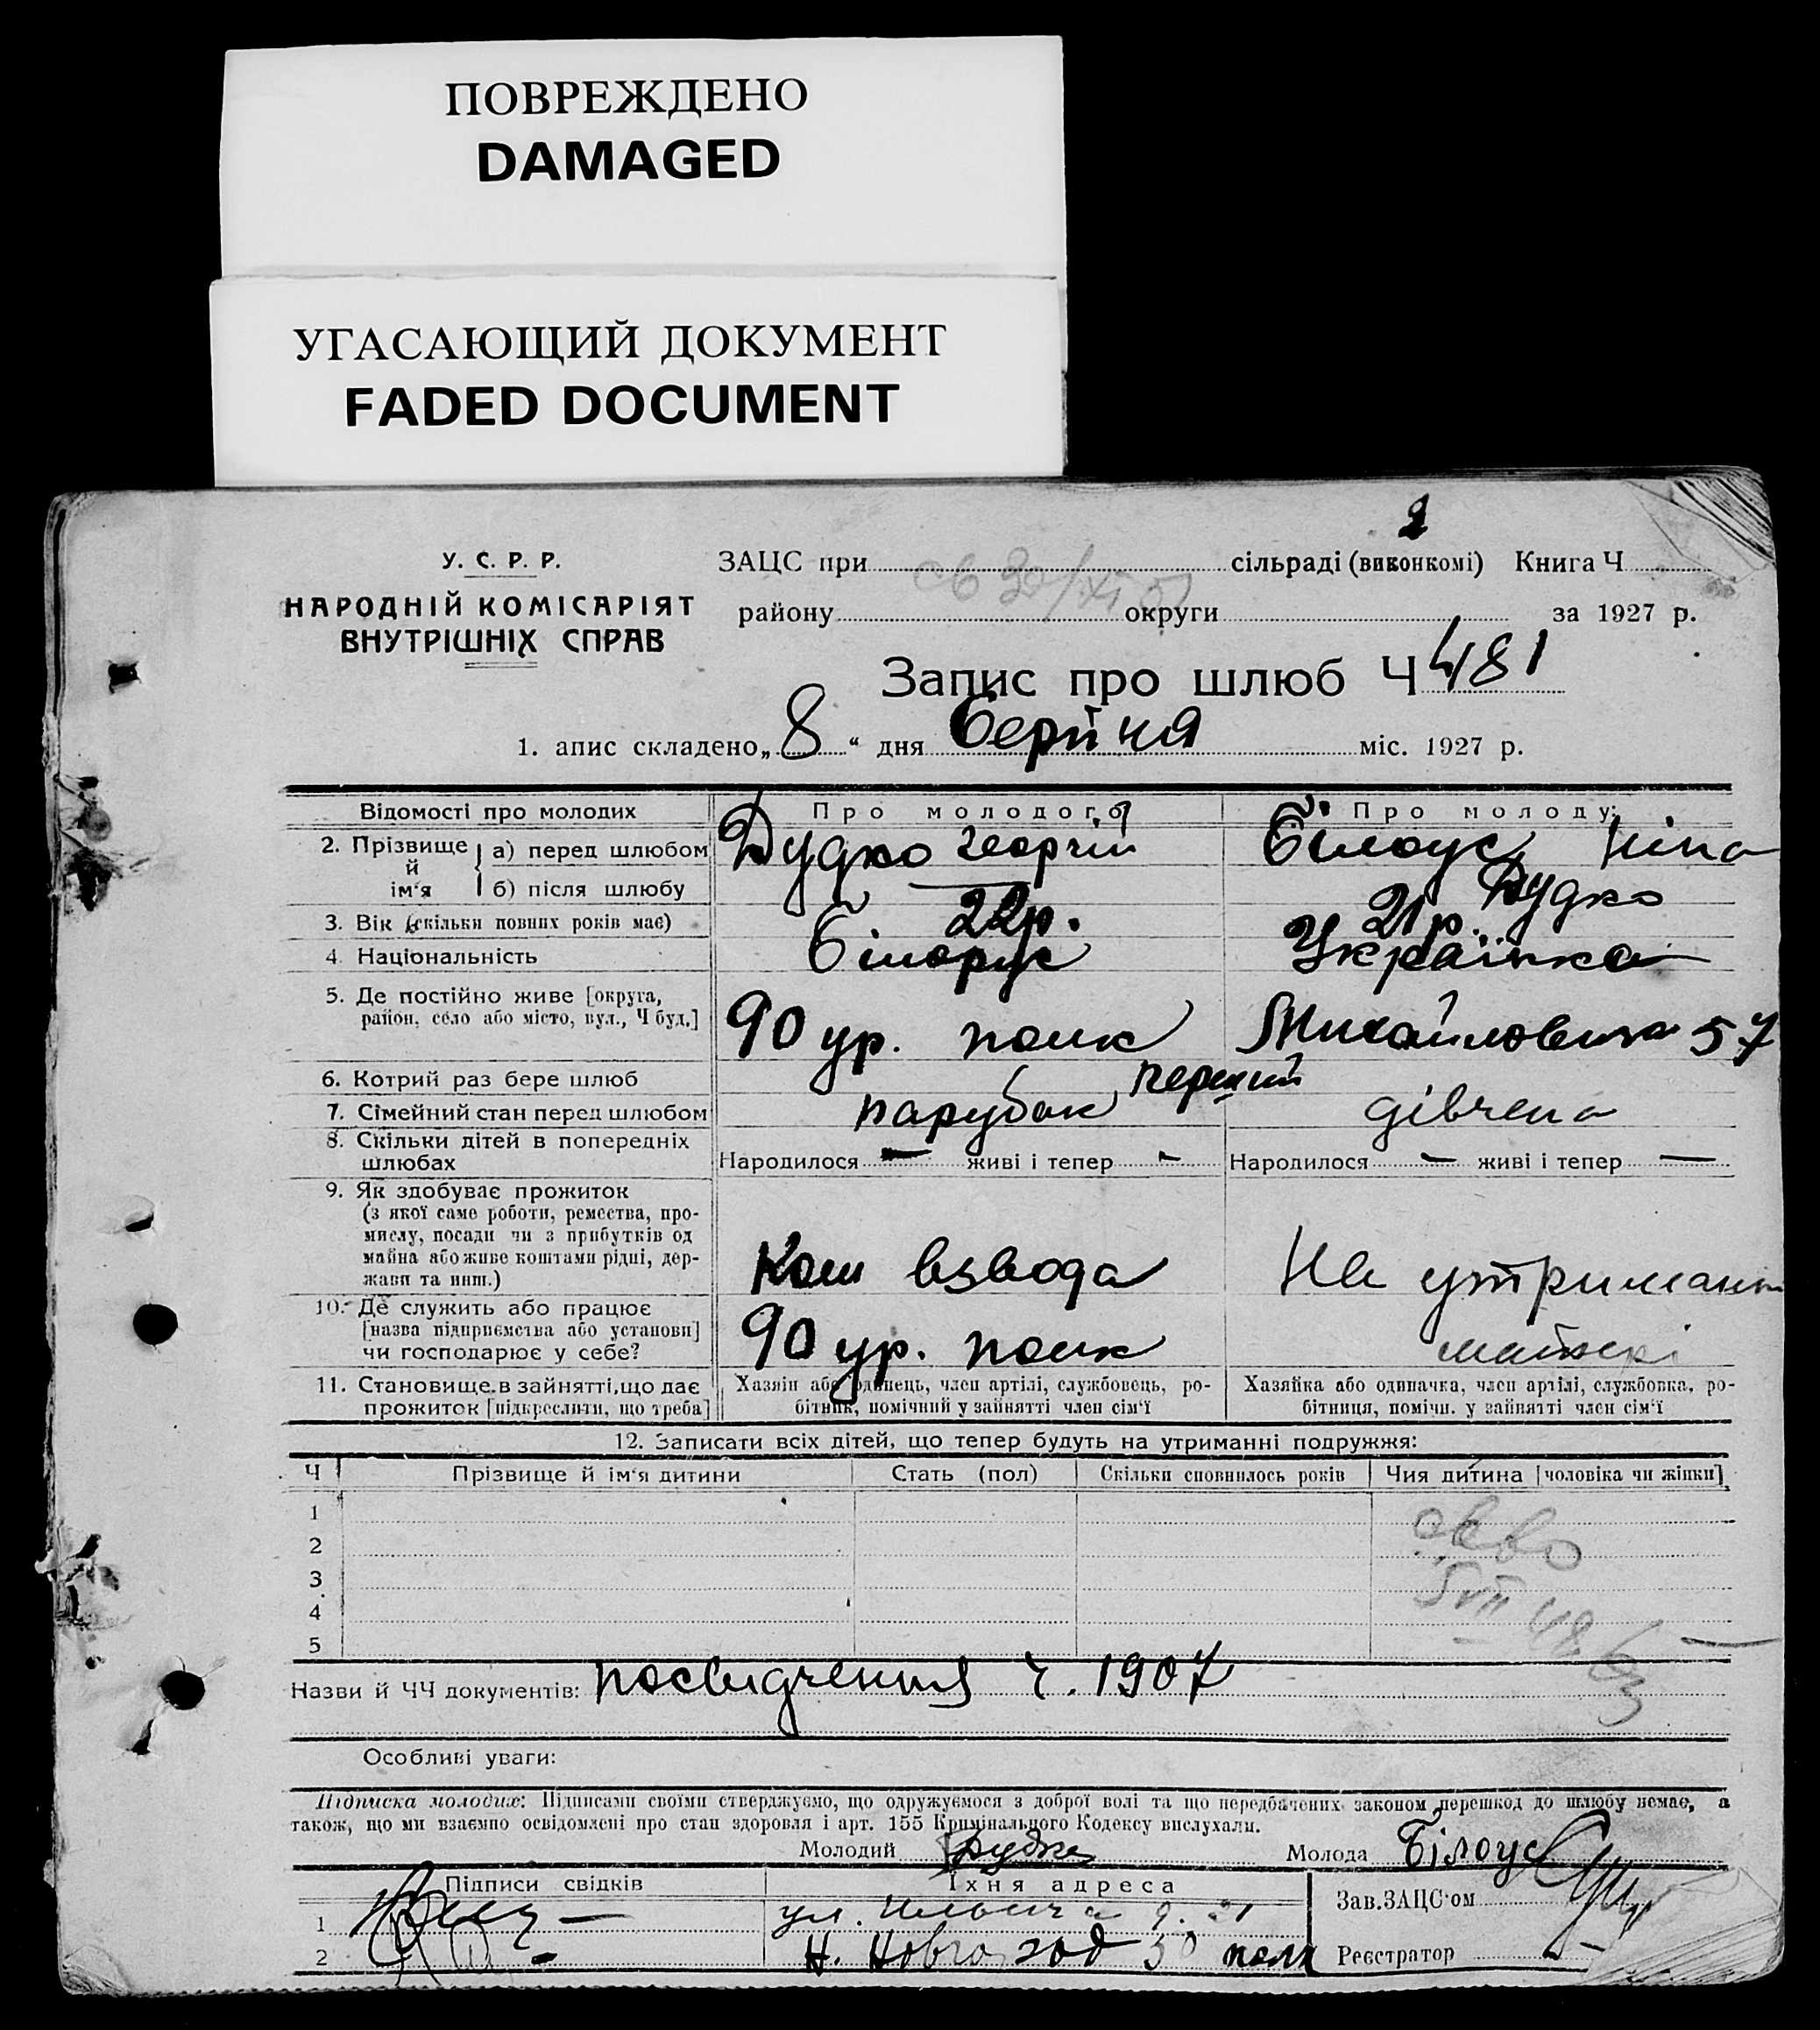 ПОВРЕЖДЕНО
DAMAGED
УГАСАЮЩИЙ ДОКУМЕНТ
FADED DOCUMENT
2
У. С. Р. Р.
НАРОДНІЙ КОМІСАРІЯТ
ВНУТРІШНІХ СПРАВ
ЗАЦС при сільраді (виконкомі) Книга Ч
району округи за 1927 р.
Запис про шлюб Ч 481
1. апис складено „8“ дня Серпня міс. 1927 р.
Відомості про молодих Про молодого Про молоду:
2. Прізвище й ім‘я а) перед шлюбом Дудко Георгій Білоус Ніна
б) після шлюбу — Дудко
3. Вік (скільки повних років має) 22р. 21р.
4 Національність Білорус Українка
5. Де постійно живе [округа, район, село або місто, вул., Ч буд.] 90 ур. полк Михайловська 57
6. Котрий раз бере шлюб перший
7. Сімейний стан перед шлюбом парубок дівчена
8. Скільки дітей в попередніх шлюбах Народилося — живі і тепер — Народилося — живі і тепер —
9. Як здобуває прожиток
(з якої саме роботи, ремества, про-
мислу, посади чи з прибутків од
майна або живе коштами рідні, дер-
жави та инш.) Ком взвода На утриманн
10. Де служить або працює
[назва підприємства або установи]
чи господарює у себе? 90 ур. полк матері
11. Становище в зайнятті, що дає
прожиток [підкреслити, що треба]
Хазяїн або одинець, член артілі, службовець, ро-
бітник, помічний у зайнятті член сім‘ї
Хазяйка або одиначка, член артілі, службовка, ро-
бітниця, помічн. у зайнятті член сім‘ї
12. Записати всіх дітей, що тепер будуть на утриманні подружжя:
Ч Прізвище й ім‘я дитини Стать (пол) Скільки сповнилось років Чия дитина [чоловіка чи жінки]
1
2
3
4
5
Назви й ЧЧ документів: посвидчення ч. 1907
Особливі уваги:
Підписка молодих: Підписами своїми стверджуємо, що одружуємося з доброї волі та що передбачених законом перешкод до шлюбу немає, а
також, що ми взаємно освідомлені про стан здоровля і арт. 155 Кримінального Кодексу вислухали.
Молодий Дудко Молода Білоус
Підписи свідків Їхня адреса Зав.ЗАЦС‘ом
1 ул. Ильича
2 Н. Новгород полк Реєстратор